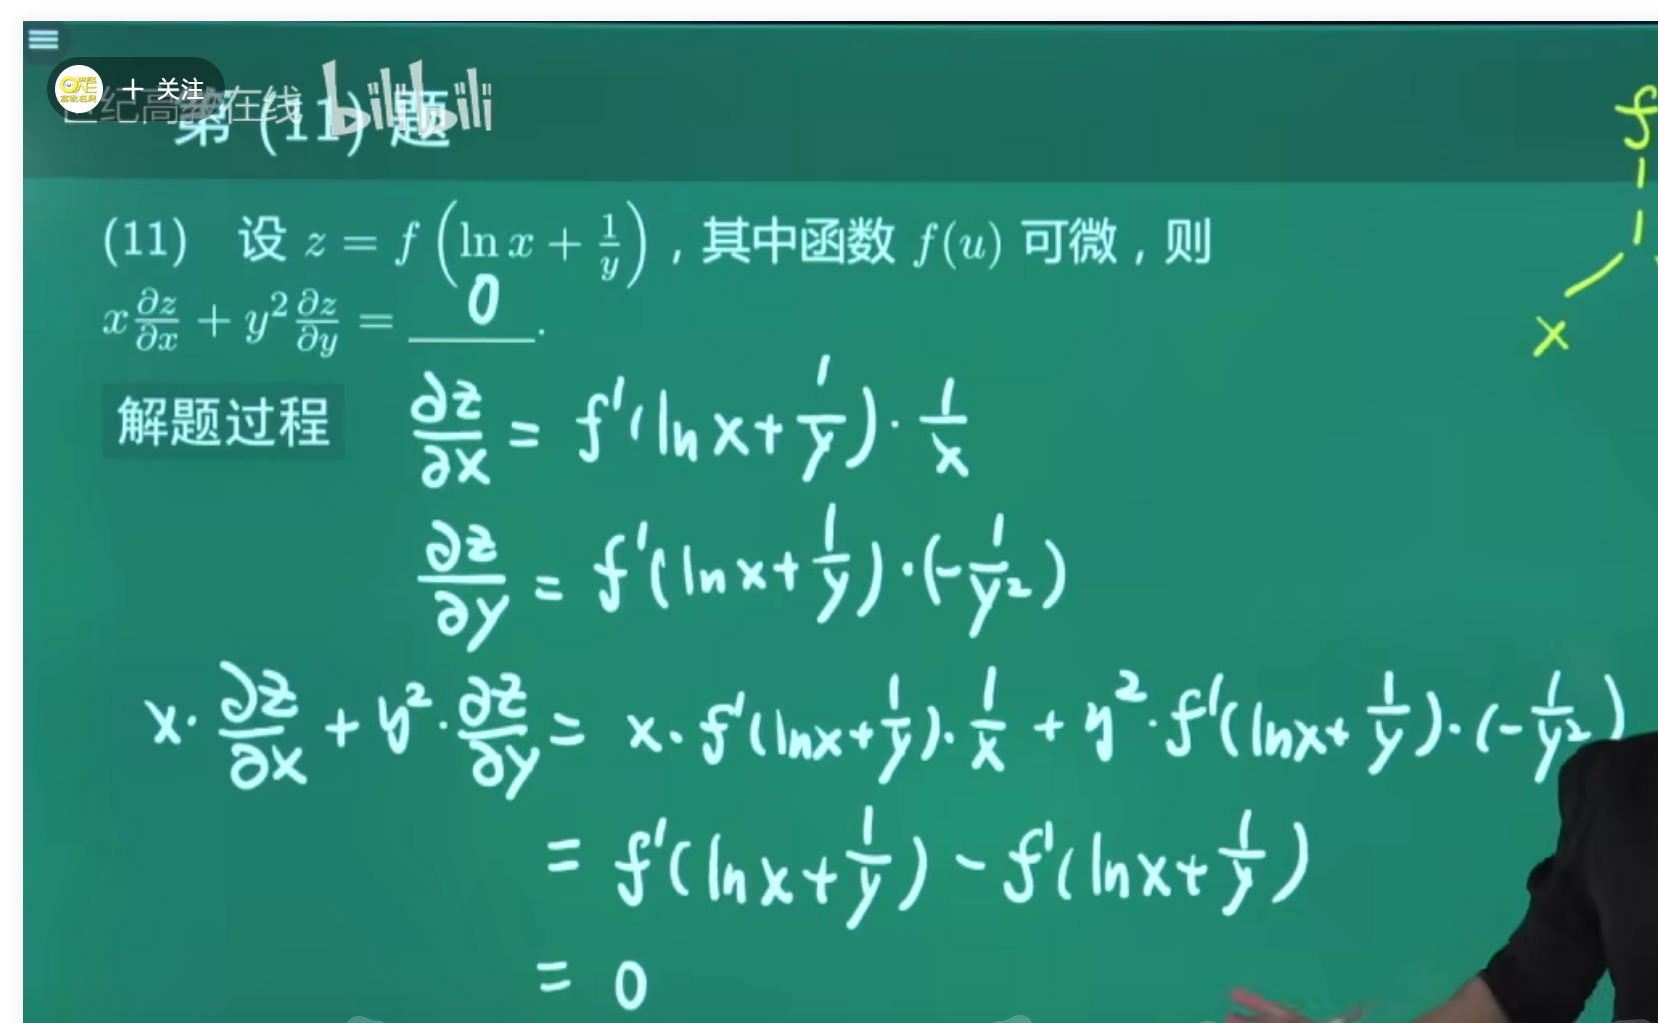 + 关注
世纪高教在线 bilibili
第 (11) 题
(11) 设 z = f(ln x + 1/y)，其中函数 f(u) 可微，则
x ∂z/∂x + y² ∂z/∂y = 0 .
解题过程 ∂z/∂x = f'(ln x + 1/y) · 1/x
∂z/∂y = f'(ln x + 1/y) · (-1/y²)
x · ∂z/∂x + y² · ∂z/∂y = x · f'(ln x + 1/y) · 1/x + y² · f'(ln x + 1/y) · (-1/y²)
= f'(ln x + 1/y) - f'(ln x + 1/y)
= 0
f
x